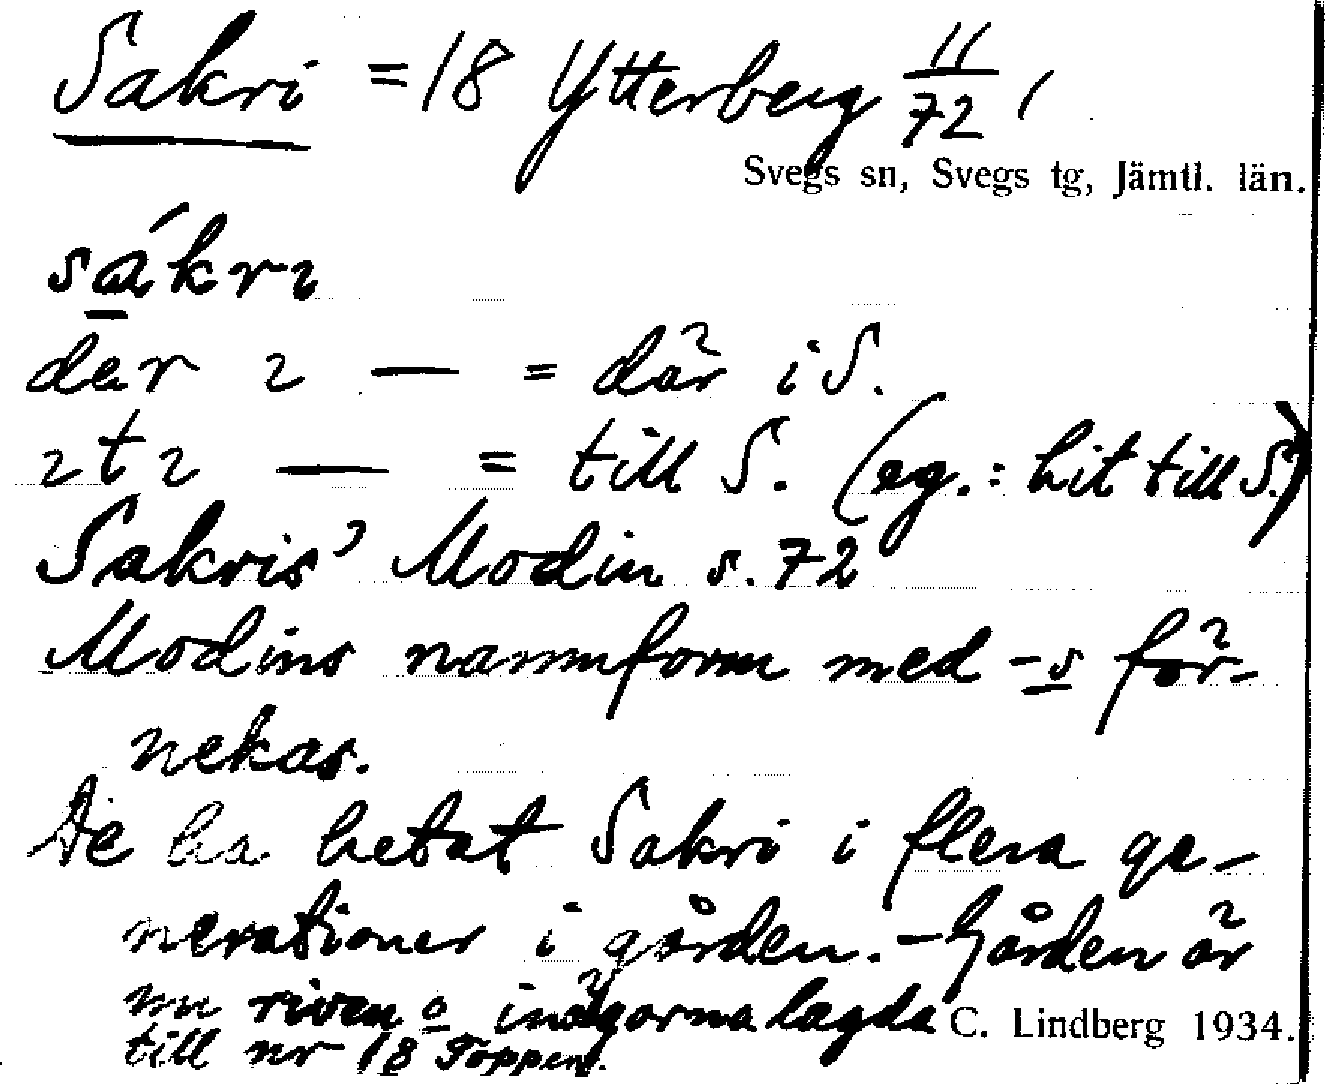 Sakri = 18 Ytterberg 11/72,
Svegs sn, Svegs tg, Jämtl. län.
sákrı
dɑr ı — = där i S.
ıtı — = till S. (eg.: hit till S.)
Sakris' Modin s. 72
Modins namnform med -s för-
nekas.
De ha hetat Sakri i flera ge-
nerationer i gården. - Gården är
nu riven o inägorna lagda
till nr 18 Toppen.
C. Lindberg 1934.